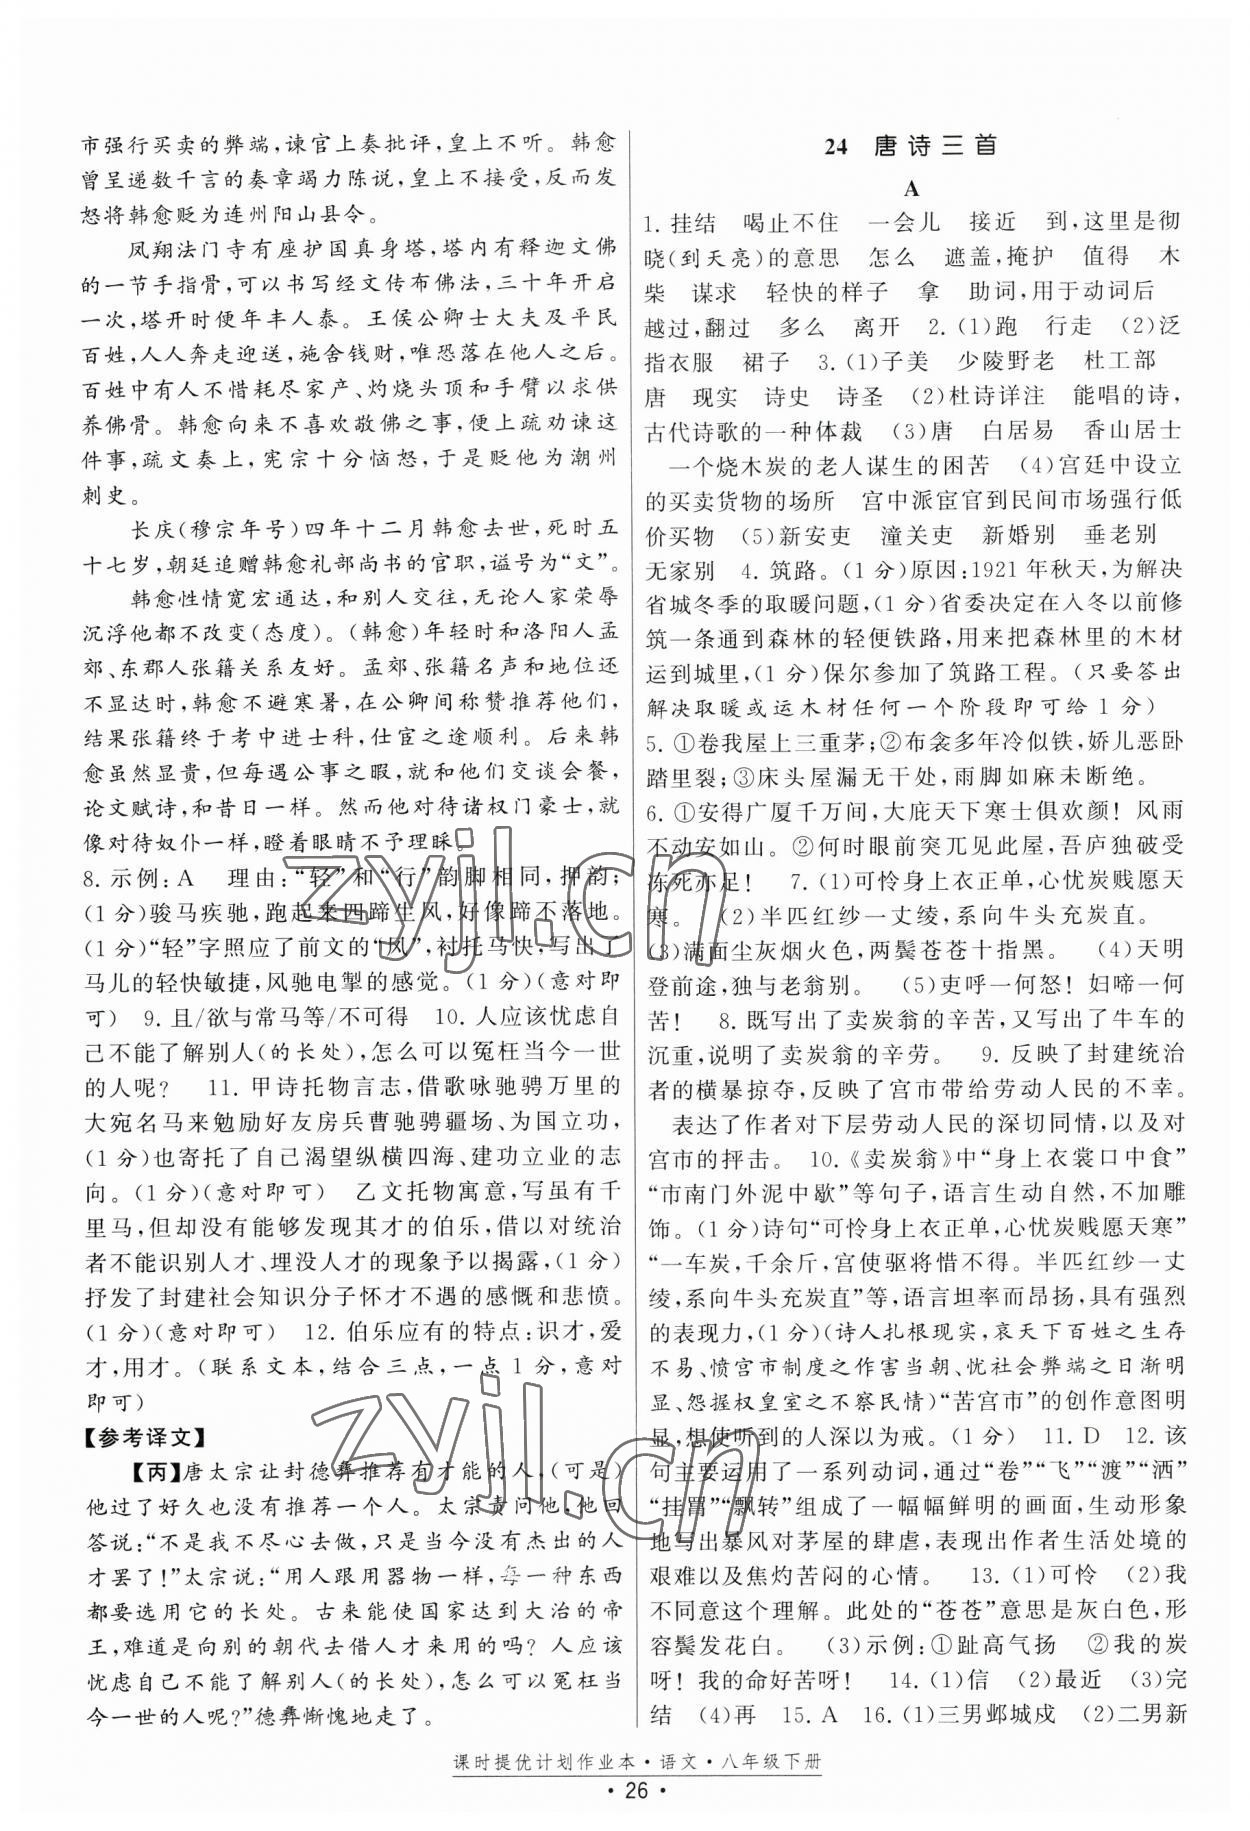 市强行买卖的弊端,谏官上奏批评,皇上不听。韩愈
曾呈递数千言的奏章竭力陈说,皇上不接受,反而发
怒将韩愈贬为连州阳山县令。
凤翔法门寺有座护国真身塔,塔内有释迦文佛
的一节手指骨,可以书写经文传布佛法,三十年开启
一次,塔开时便年丰人泰。王侯公卿士大夫及平民
百姓,人人奔走迎送,施舍钱财,唯恐落在他人之后。
百姓中有人不惜耗尽家产、灼烧头顶和手臂以求供
养佛骨。韩愈向来不喜欢敬佛之事,便上疏劝谏这
件事,疏文奏上,宪宗十分恼怒,于是贬他为潮州
刺史。
长庆(穆宗年号)四年十二月韩愈去世,死时五
十七岁,朝廷追赠韩愈礼部尚书的官职,谥号为“文”。
韩愈性情宽宏通达,和别人交往,无论人家荣辱
沉浮他都不改变(态度)。(韩愈)年轻时和洛阳人孟
郊、东郡人张籍关系友好。孟郊、张籍名声和地位还
不显达时,韩愈不避寒暑,在公卿间称赞推荐他们,
结果张籍终于考中进士科,仕宦之途顺利。后来韩
愈虽然显贵,但每遇公事之暇,就和他们交谈会餐,
论文赋诗,和昔日一样。然而他对待诸权门豪士,就
像对待奴仆一样,瞪着眼睛不予理睬。
8. 示例:A 理由:“轻”和“行”韵脚相同,押韵;
(1分)骏马疾驰,跑起来四蹄生风,好像蹄不落地。
(1分)“轻”字照应了前文的“风”,衬托马快,写出了
马儿的轻快敏捷,风驰电掣的感觉。(1分)(意对即
可) 9. 且/欲与常马等/不可得 10. 人应该忧虑自
己不能了解别人(的长处),怎么可以冤枉当今一世
的人呢? 11. 甲诗托物言志,借歌咏驰骋万里的
大宛名马来勉励好友房兵曹驰骋疆场、为国立功,
(1分)也寄托了自己渴望纵横四海、建功立业的志
向。(1分)(意对即可) 乙文托物寓意,写虽有千
里马,但却没有能够发现其才的伯乐,借以对统治
者不能识别人才、埋没人才的现象予以揭露,(1分)
抒发了封建社会知识分子怀才不遇的感慨和悲愤。
(1分)(意对即可) 12. 伯乐应有的特点:识才,爱
才,用才。(联系文本,结合三点,一点1分,意对
即可)
【参考译文】
【丙】唐太宗让封德彝推荐有才能的人,(可是)
他过了好久也没有推荐一个人。太宗责问他,他回
答说:“不是我不尽心去做,只是当今没有杰出的人
才罢了!”太宗说:“用人跟用器物一样,每一种东西
都要选用它的长处。古来能使国家达到大治的帝
王,难道是向别的朝代去借人才来用的吗?人应该
忧虑自己不能了解别人(的长处),怎么可以冤枉当
今一世的人呢?”德彝惭愧地走了。
24 唐诗三首
A
1. 挂结 喝止不住 一会儿 接近 到,这里是彻
晓(到天亮)的意思 怎么 遮盖,掩护 值得 木
柴 谋求 轻快的样子 拿 助词,用于动词后
越过,翻过 多么 离开 2. (1)跑 行走 (2)泛
指衣服 裙子 3. (1)子美 少陵野老 杜工部
唐 现实 诗史 诗圣 (2)杜诗详注 能唱的诗,
古代诗歌的一种体裁 (3)唐 白居易 香山居士
一个烧木炭的老人谋生的困苦 (4)宫廷中设立
的买卖货物的场所 宫中派宦官到民间市场强行低
价买物 (5)新安吏 潼关吏 新婚别 垂老别
无家别 4. 筑路。(1分)原因:1921年秋天,为解决
省城冬季的取暖问题,(1分)省委决定在入冬以前修
筑一条通到森林的轻便铁路,用来把森林里的木材
运到城里,(1分)保尔参加了筑路工程。(只要答出
解决取暖或运木材任何一个阶段即可给1分)
5. ①卷我屋上三重茅;②布衾多年冷似铁,娇儿恶卧
踏里裂;③床头屋漏无干处,雨脚如麻未断绝。
6. ①安得广厦千万间,大庇天下寒士俱欢颜!风雨
不动安如山。②何时眼前突兀见此屋,吾庐独破受
冻死亦足! 7. (1)可怜身上衣正单,心忧炭贱愿天
寒。 (2)半匹红纱一丈绫,系向牛头充炭直。
(3)满面尘灰烟火色,两鬓苍苍十指黑。 (4)天明
登前途,独与老翁别。 (5)吏呼一何怒!妇啼一何
苦! 8. 既写出了卖炭翁的辛苦,又写出了牛车的
沉重,说明了卖炭翁的辛劳。 9. 反映了封建统治
者的横暴掠夺,反映了宫市带给劳动人民的不幸。
表达了作者对下层劳动人民的深切同情,以及对
宫市的抨击。 10.《卖炭翁》中“身上衣裳口中食”
“市南门外泥中歇”等句子,语言生动自然,不加雕
饰。(1分)诗句“可怜身上衣正单,心忧炭贱愿天寒”
“一车炭,千余斤,宫使驱将惜不得。半匹红纱一丈
绫,系向牛头充炭直”等,语言坦率而昂扬,具有强烈
的表现力,(1分)(诗人扎根现实,哀天下百姓之生存
不易、愤宫市制度之作害当朝、忧社会弊端之日渐明
显、怨握权皇室之不察民情)“苦宫市”的创作意图明
显,想使听到的人深以为戒。(1分) 11. D 12. 该
句主要运用了一系列动词,通过“卷”“飞”“渡”“洒”
“挂罥”“飘转”组成了一幅幅鲜明的画面,生动形象
地写出暴风对茅屋的肆虐,表现出作者生活处境的
艰难以及焦灼苦闷的心情。 13. (1)可怜 (2)我
不同意这个理解。此处的“苍苍”意思是灰白色,形
容鬓发花白。 (3)示例:①趾高气扬 ②我的炭
呀!我的命好苦呀! 14. (1)信 (2)最近 (3)完
结 (4)再 15. A 16. (1)三男邺城戍 (2)二男新
课时提优计划作业本·语文·八年级下册
· 26 ·
zyjl.cn
zyjl.cn